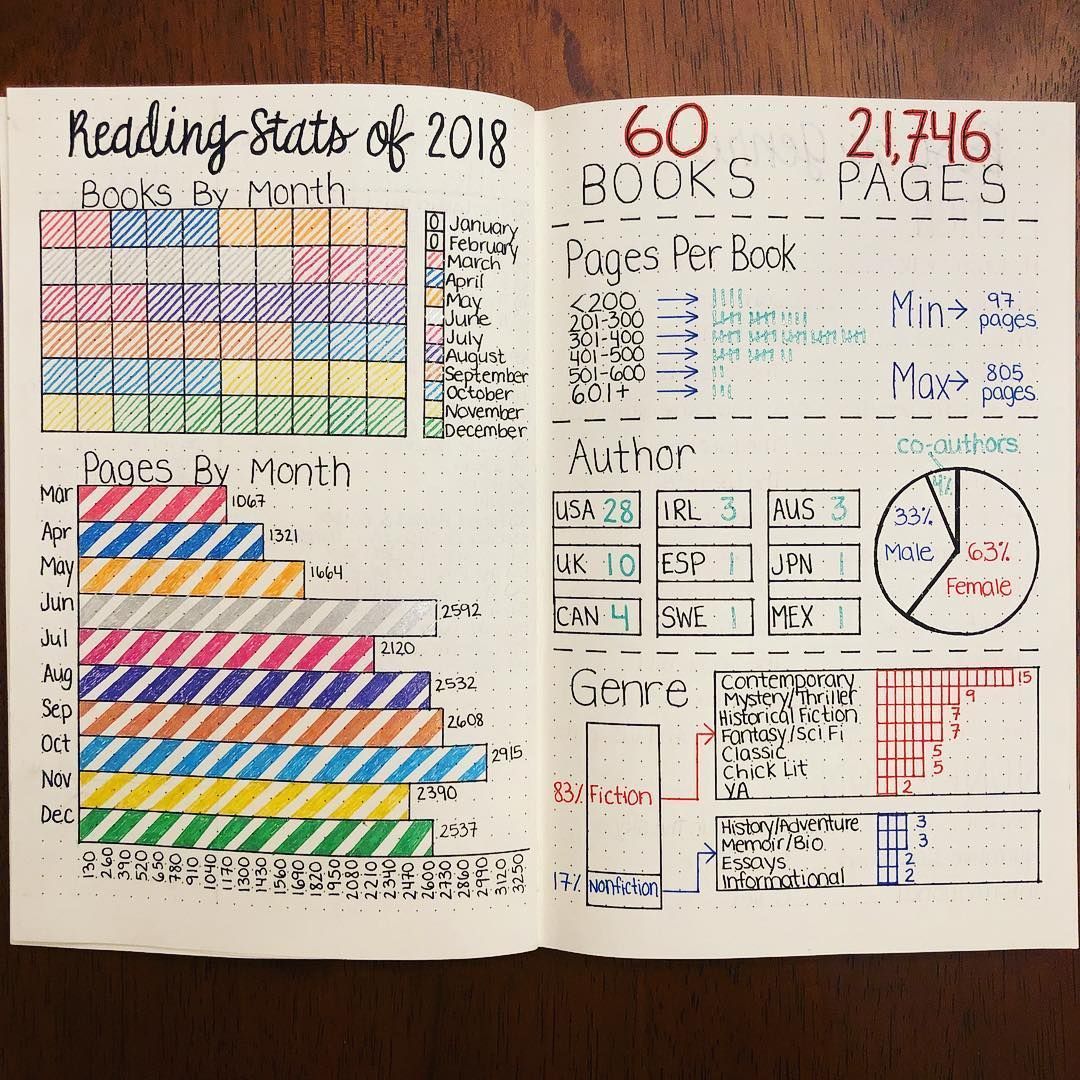 Reading Stats of 2018
Books By Month
0 January
0 February
March
April
May
June
July
August
September
October
November
December
Pages By Month
Mar 1067
Apr 1321
May 1664
Jun 2592
Jul 2120
Aug 2532
Sep 2608
Oct 2915
Nov 2390
Dec 2537
130 260 390 520 650 780 910 1040 1170 1300 1430 1560 1690 1820 1950 2080 2210 2340 2470 2600 2730 2860 2990 3120 3250
60 21,746
BOOKS PAGES
Pages Per Book
<200
201-300
301-400
401-500
501-600
601+
Min 97 pages
Max 805 pages
Author
co-authors
4%
33% Male
63% Female
USA 28 IRL 3 AUS 3
UK 10 ESP 1 JPN 1
CAN 4 SWE 1 MEX 1
Genre
83% Fiction
17% Nonfiction
Contemporary 15
Mystery/Thriller 9
Historical Fiction 7
Fantasy/Sci Fi 7
Classic 5
Chick Lit 5
YA 2
History/Adventure 3
Memoir/Bio 3
Essays 2
Informational 2